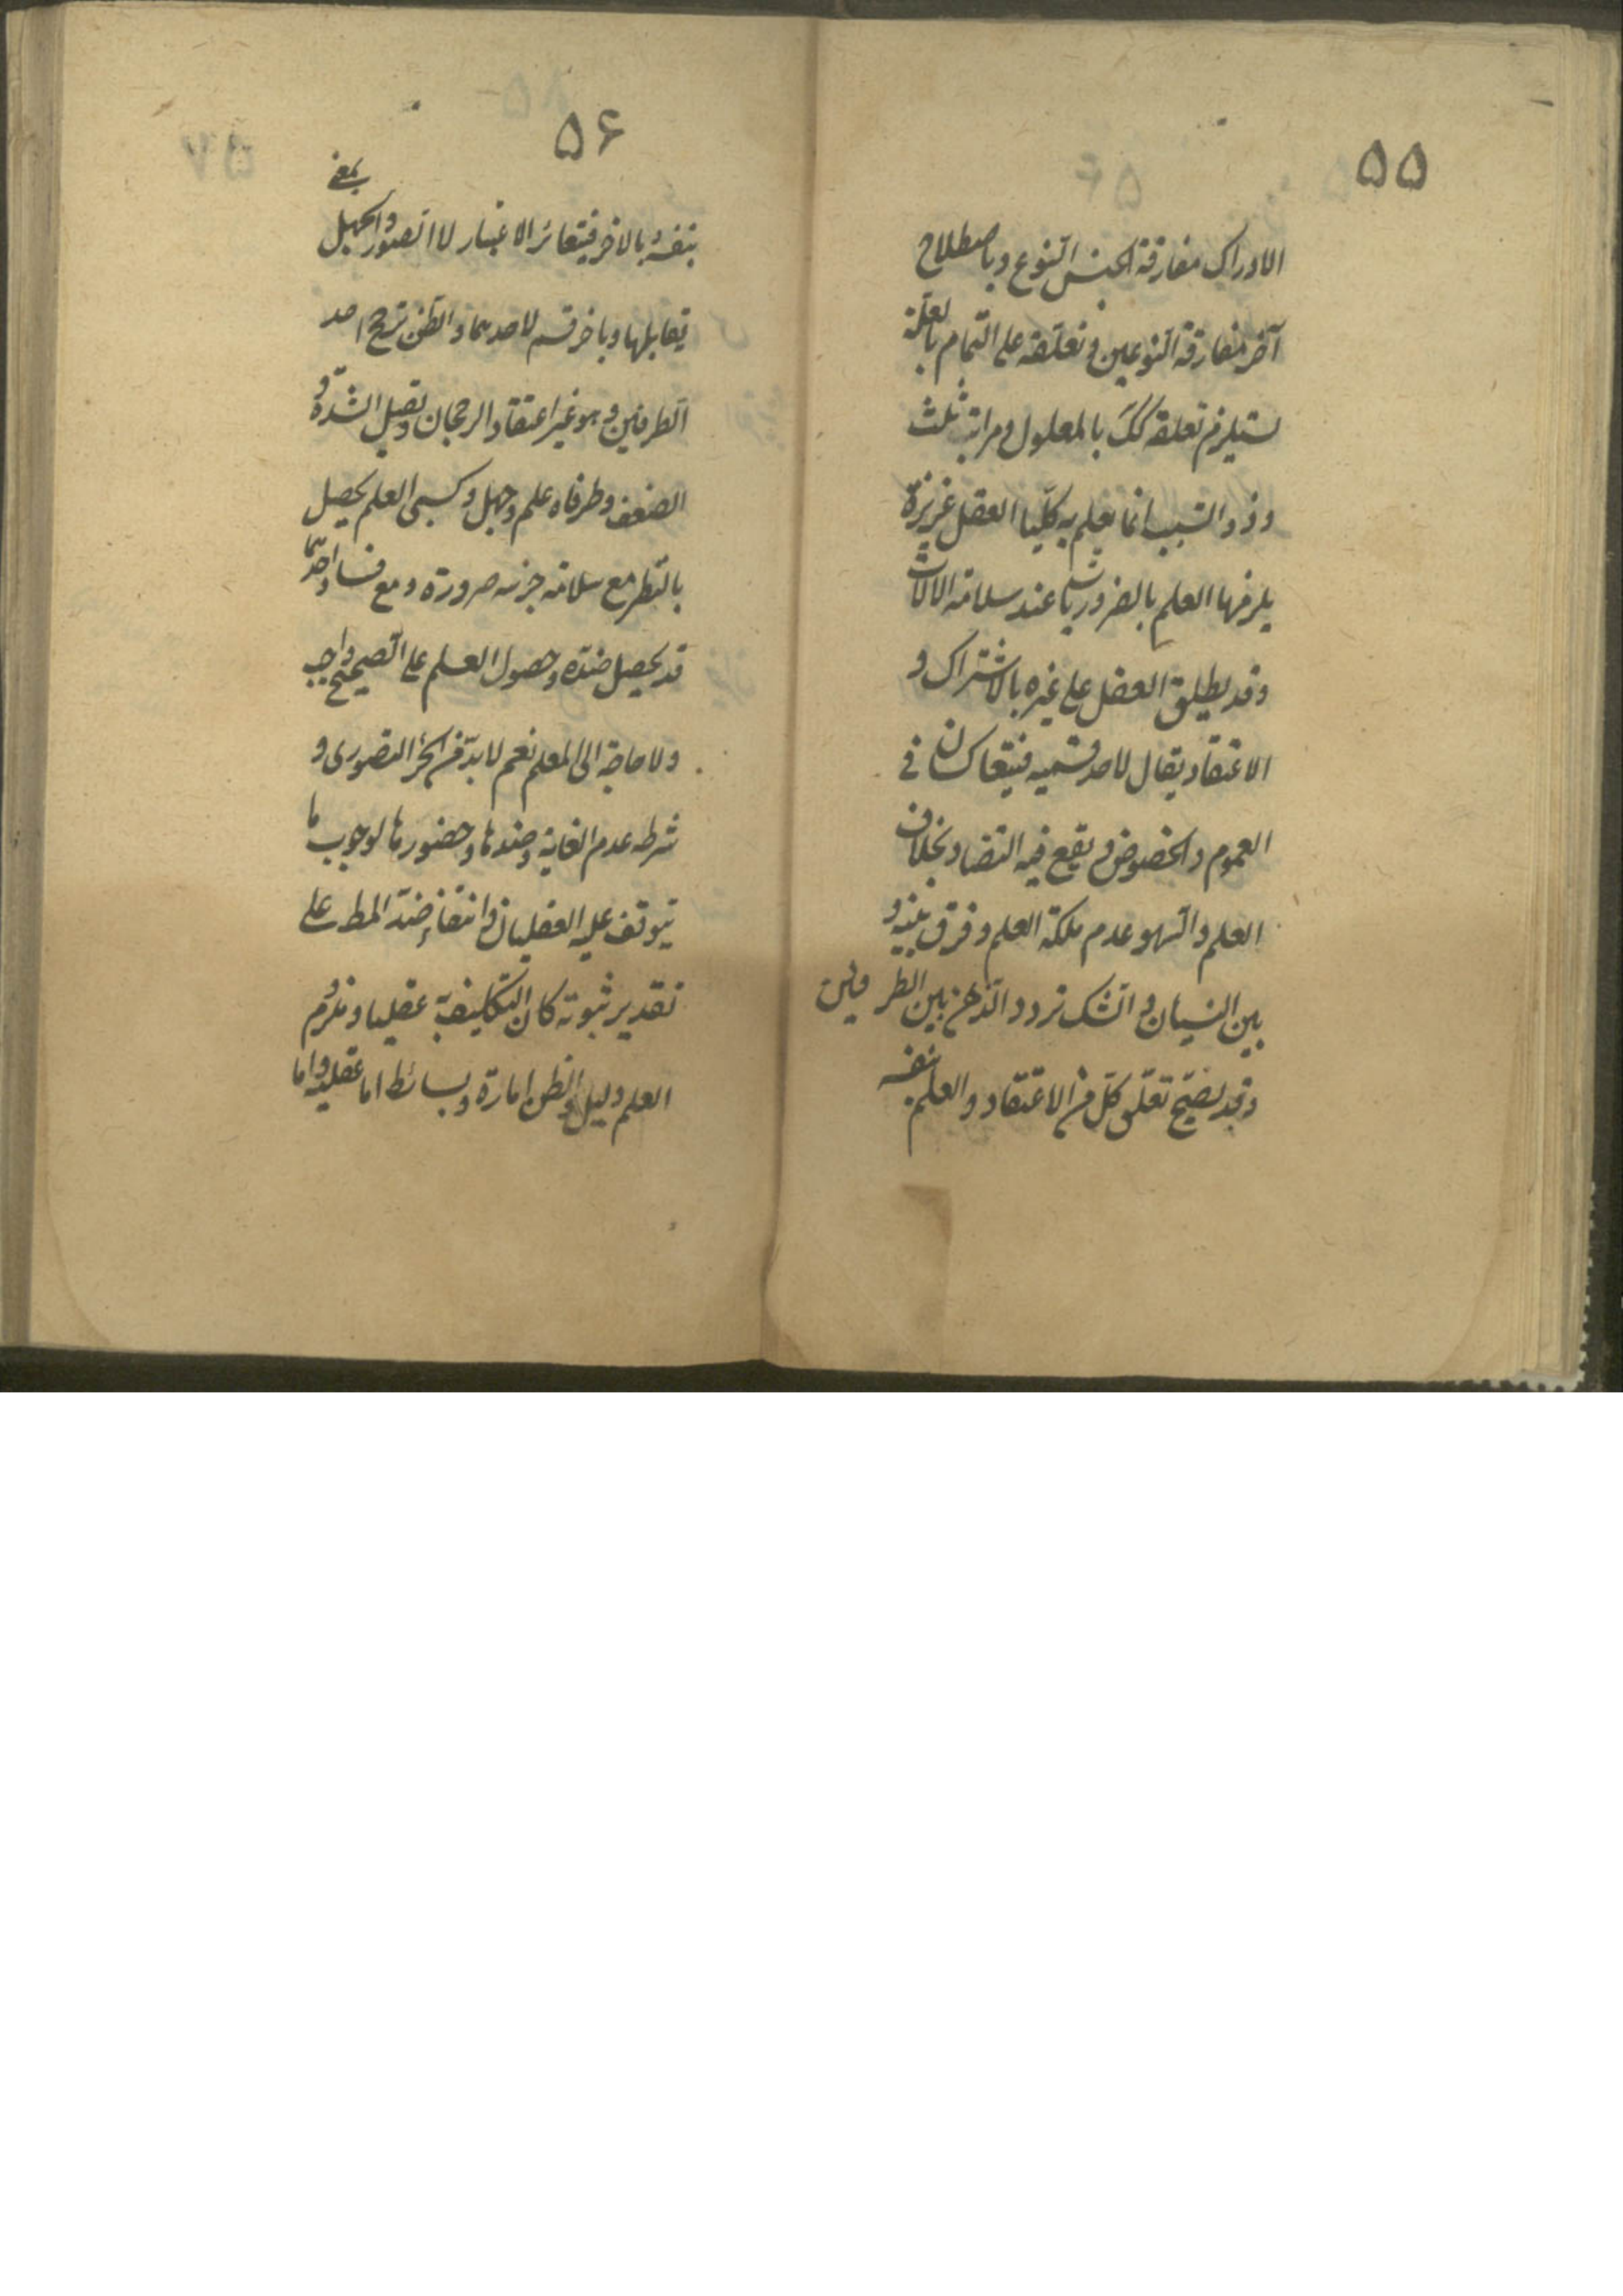 ۵۵
الادراک مفارقة الجنس النوع و باصطلاح
آخر مفارقة النوعین و تعلقه على التمام بالعلة
یستلزم تعلقه کک بالمعلول و مراتبه ثلث
و ذو السبب انما یعلم به کلیا العقل غریزة
یلزمها العلم بالضروریات عند سلامة الالات
و قد یطلق العقل على غیره بالاشتراک و
الاعتقاد یقال لاحد قسمیه فیتعاکسان فی
العموم و الخصوص و یقع فیه التضاد بخلاف
العلم و السهو عدم ملکة العلم و فرق بینه و
بین النسیان و الشک تردد الذهن بین الطرفین
و قد یصح تعلق کل من الاعتقاد و العلم بنفسه
۵۶
بنفسه و بالاخر فیتغائر الاعتبار لا التصور و الجهل بمعنى
یقابلها و باخر قسم لاحدهما و الظن ترجح احد
الطرفین و هو غیر اعتقاد الرجحان و یقبل الشدة و
الضعف و طرفاه علم و جهل و کسبى العلم یحصل
بالنظر مع سلامة جزئه ضرورة و مع فساد احدهما
قد یحصل ضده و حصول العلم على الصحیح واجب
و لا حاجة الى المعلم نعم لا بد من الجزء التصورى و
شرطه عدم الغایة و ضدها و حضورها لوجوب ما
یتوقف علیه العقلیان و انتفاء ضد المط على
تقدیر ثبوته کان التکلیف به عقلیا و ملزوم
العلم دلیل و الظن امارة و بسائطه اما عقلیة و اما